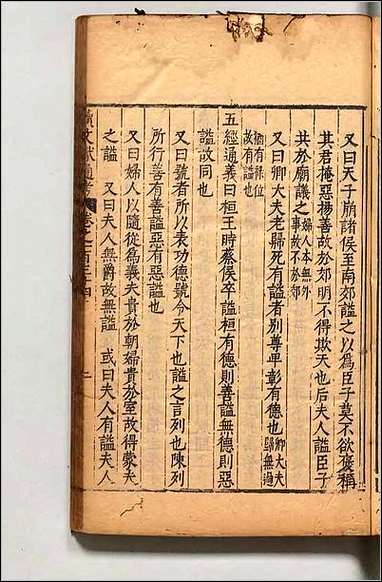 又曰天子崩諸侯至南郊謚之以爲臣子莫不欲襃稱
其君掩惡揚善故於郊明不得欺天也后夫人謚臣子
共於廟議之婦人本無外事故不於郊
又曰卿大夫老歸死有謚者別尊卑彰有德也卿大夫歸無過
猶有祿位故有謚也
五經通義曰桓王時蔡侯卒謚桓有德則善謚無德則惡
謚故同也
又曰號者所以表功德號令天下也謚之言列也陳列
所行善有善謚惡有惡謚也
又曰婦人以隨從爲義夫貴於朝婦貴於室故得蒙夫
之謚　又曰夫人無爵故無謚　或曰夫人有謚夫人
文獻通考 卷之一百三十四
二